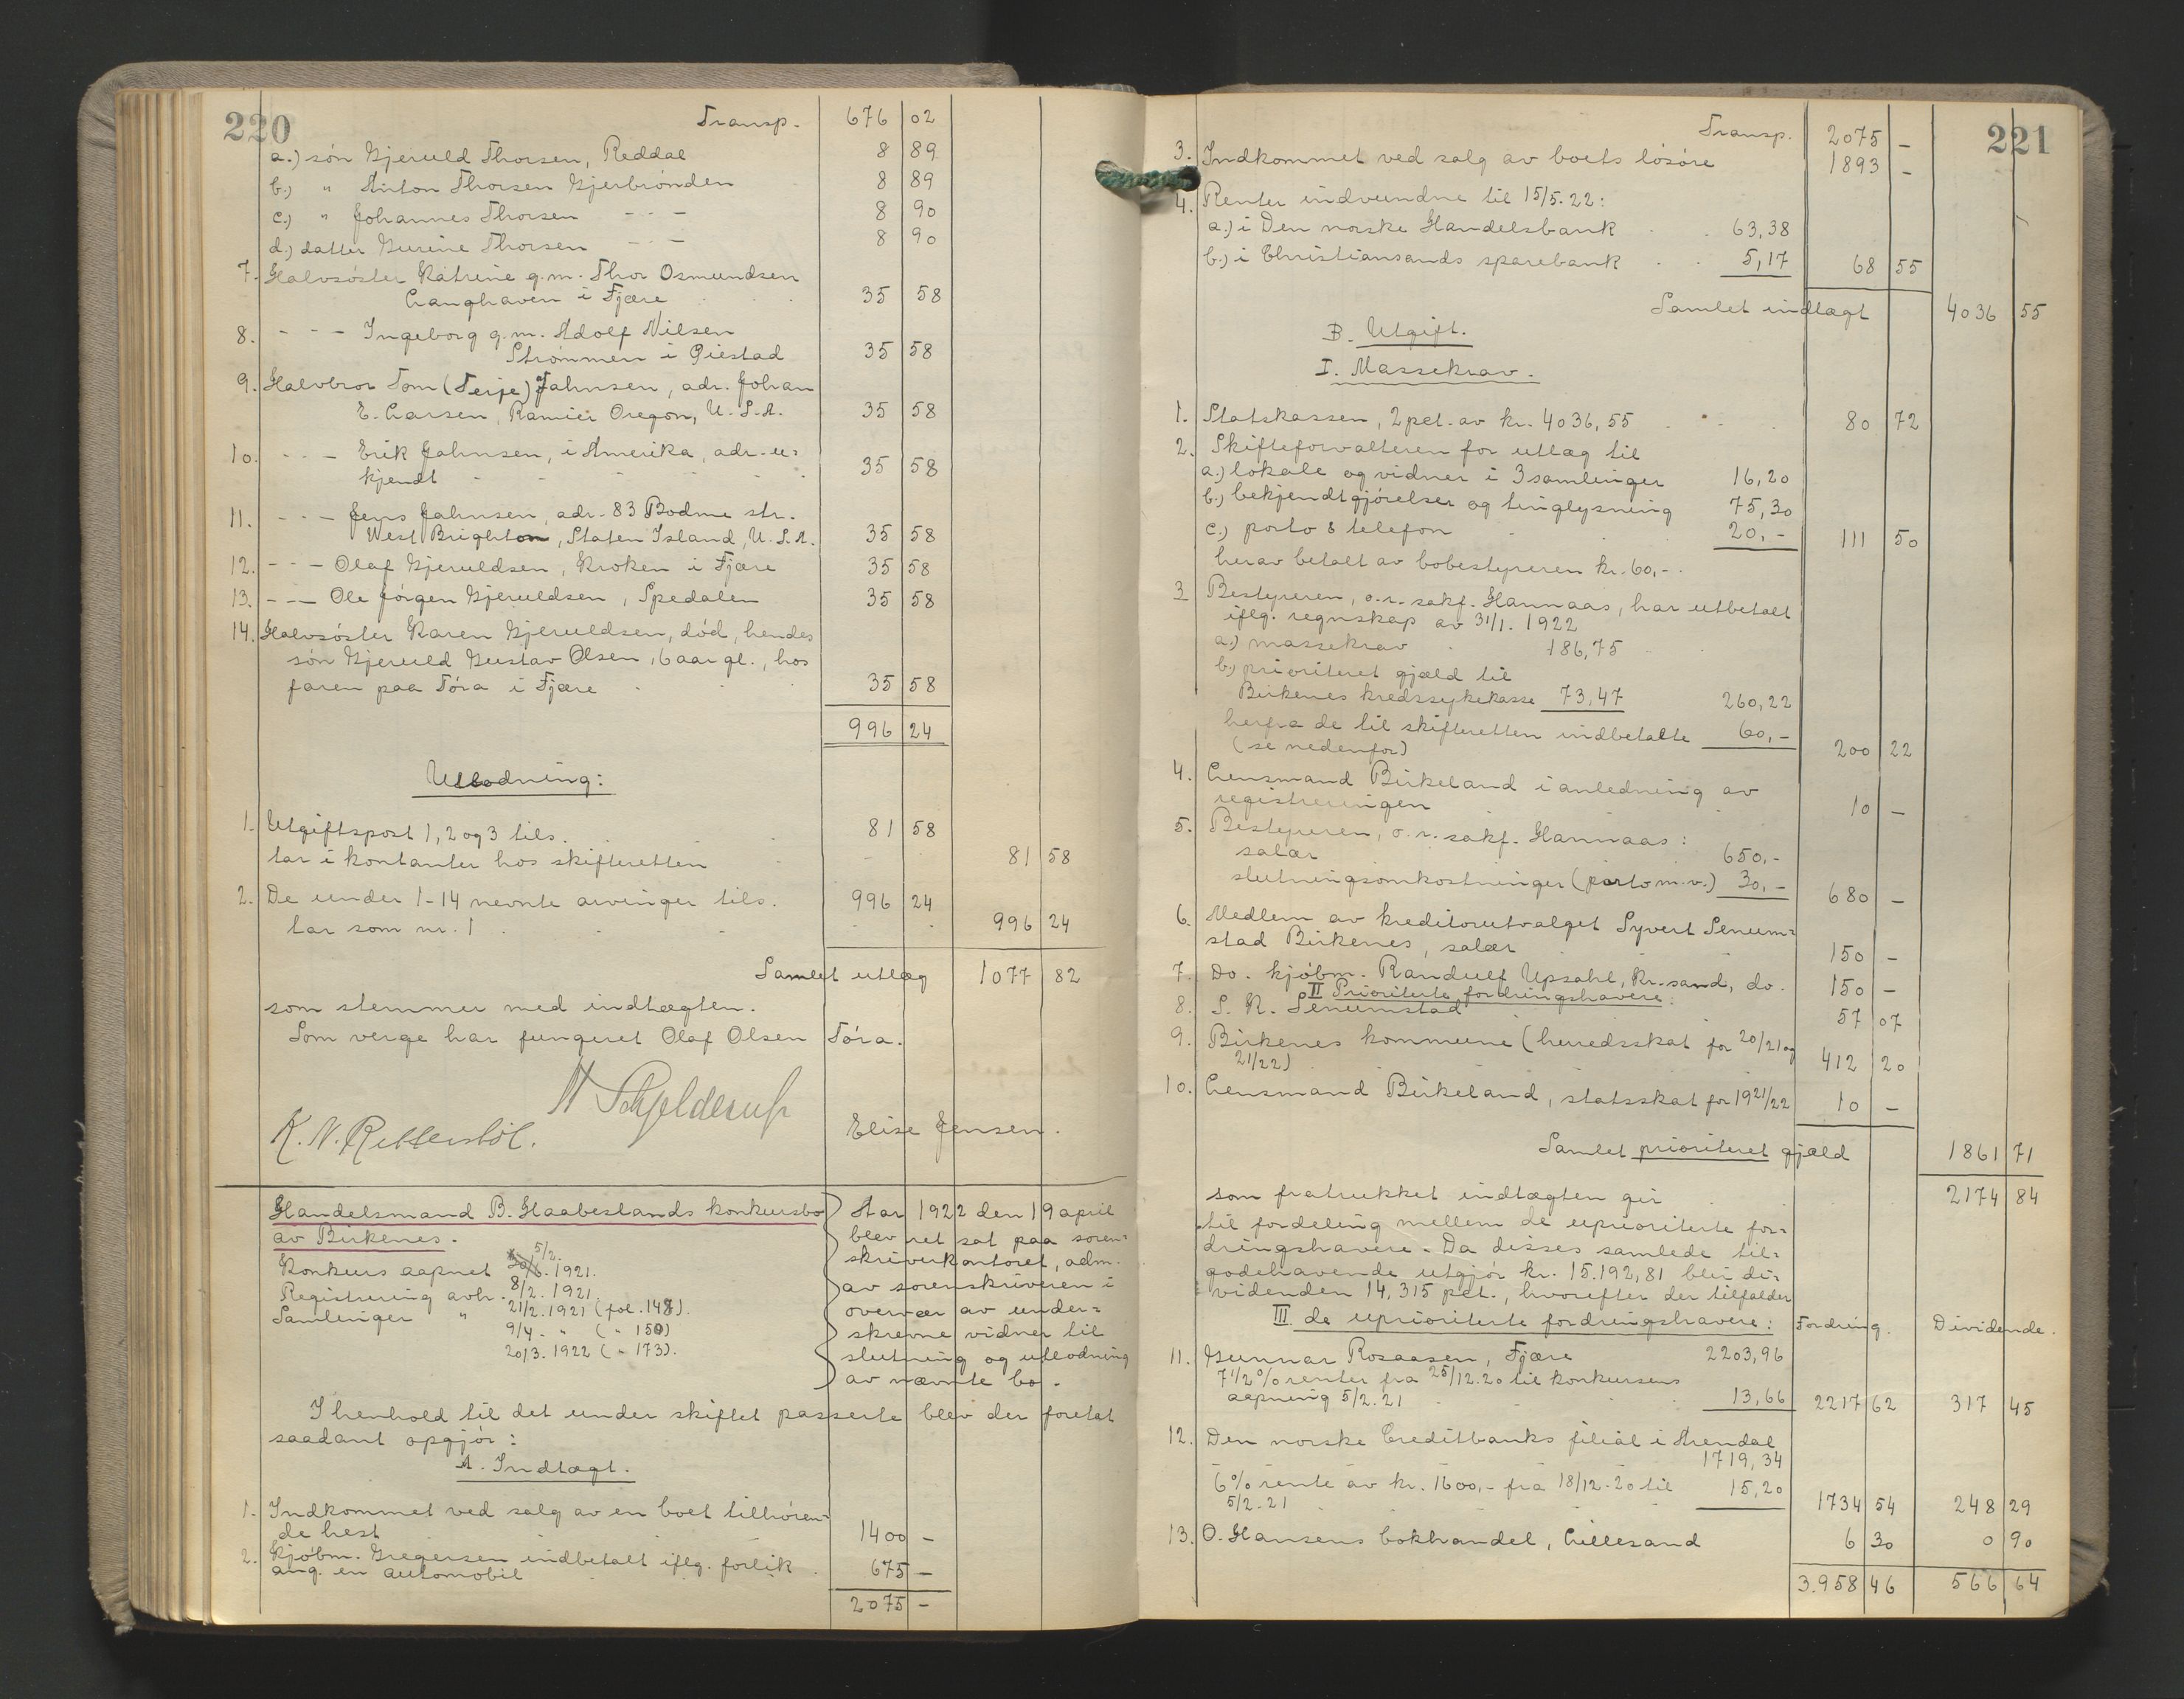 220
Transp. 676 02
a.) søn Gjeruld Thorsen, Reddal 8 89
b.) " Anton Thorsen Gjerbrønden 8 89
c.) " Johannes Thorsen - - - 8 90
d.) datter Gurine Thorsen - - - 8 90
7. Halvsøster Katrine g.m. Thor Osmundsen
Langhaven i Fjære 35 58
8. - - - Ingeborg g.m. Adolf Nilsen
Strømmen i Øiestad 35 58
9. Halvbror Tom (Terje) Jahnsen, adr. Johan
E. Larsen, Ramier Oregon, U.S.A. 35 58
10. - - - Erik Jahnsen, i Amerika, adr. u=
kjendt 35 58
11. - - - Jens Jahnsen, adr. 83 Bodine str.
West Brighton, Staten Island, U.S.A. 35 58
12. - - - Olaf Gjeruldsen, Kroken i Fjære 35 58
13. - - - Ole Jørgen Gjeruldsen, Spedalen 35 58
14. Halvsøster Karen Gjeruldsen, død, hendes
søn Gjeruld Gustav Olsen, 6 aar gl., hos
faren paa Tøra i Fjære 35 58
996 24
Utlodning:
1. Utgiftspost 1, 2 og 3 tils. 81 58
tar i kontanter hos skifteretten 81 58
2. De under 1-14 nevnte arvinger tils. 996 24
tar som nr. 1 996 24
Samlet utlæg 1077 82
som stemmer med indtægten.
Som verge har fungeret Olaf Olsen Tøra.
N Schjelderup
K. N. Rettersbøl. Elise Jensen.
Handelsmand B. Haabeslands konkursbo
av Birkenes.
Konkurs aapnet 5/2. 1921.
Registrering avh. 8/2. 1921.
Samlinger " 21/2. 1921 (fol. 148).
9/4. - " ( " 150)
20/3. 1922 ( " 173).
Aar 1922 den 19 april
blev ret sat paa soren=
skriverkontoret, adm.
av sorenskriveren i
overvær av under=
skrevne vidner til
slutning og utlodning
av nævnte bo.
I henhold til det under skiftet passerte blev der foretat
saadant opgjør:
A. Indtægt.
1. Indkommet ved salg av en boet tilhøren=
de hest 1400 -
2. Kjøbm. Gregersen indbetalt iflg. forlik
ang. en automobil 675 -
2075 -
221
Transp. 2075 -
3. Indkommet ved salg av boets løsøre 1893 -
4. Renter indvundne til 15/5. 22:
a.) i Den norske Handelsbank 63,38
b.) i Christiansands sparebank 5,17 68 55
Samlet indtægt 4036 55
B. Utgift.
I. Massekrav.
1. Statskassen, 2 pct. av kr. 4036,55 80 72
2. Skifteforvalteren for utlæg til
a.) lokale og vidner i 3 samlinger 16,20
b.) bekjendtgjørelser og tinglysning 75,30
c.) porto & telefon 20,- 111 50
herav betalt av bobestyreren kr. 60,-.
3. Bestyreren, o.r. sakf. Hannaas, har utbetalt
iflg. regnskap av 31/1. 1922
a.) massekrav 186,75
b.) prioriteret gjæld til
Birkenes kredssykekasse 73,47 260,22
herfra de til skifteretten indbetalte 60,-
(se nedenfor) 200 22
4. Lensmand Birkeland i anledning av
registreringen 10 -
5. Bestyreren, o.r. sakf. Hannaas:
salær 650,-
slutningsomkostninger (porto m.v.) 30,- 680 -
6. Medlem av kreditorutvalget Syvert Senum=
stad Birkenes, salær 150 -
7. Do. kjøbm. Randulf Upsahl, Kr.sand, do. 150 -
II Prioriterte fordringshavere:
8. S. K. Senumstad 57 07
9. Birkenes kommune (herredsskat for 20/21 og
21/22) 412 20
10. Lensmand Birkeland, statsskat for 1921/22 10 -
Samlet prioriteret gjæld 1861 71
som fratrukket indtægten gir 2174 84
til fordeling mellem de uprioriterte for=
dringshavere. Da disses samlede til=
godehavende utgjør kr. 15.192,81 blir di=
videnden 14,315 pct., hvorefter der tilfalder
III de uprioriterte fordringshavere: Fordring. Dividende.
11. Gunnar Rosaasen, Fjære 2203,96
7 1/2 % renter fra 25/12.20 til konkursens
aapning 5/2.21 13,66 2217 62 317 45
12. Den norske Creditbanks filial i Arendal
1719,34
6% rente av kr. 1600,- fra 18/12.20 til 15,20
5/2.21 1734 54 248 29
13. O. Hansens bokhandel, Lillesand 6 30 0 90
3.958 46 566 64